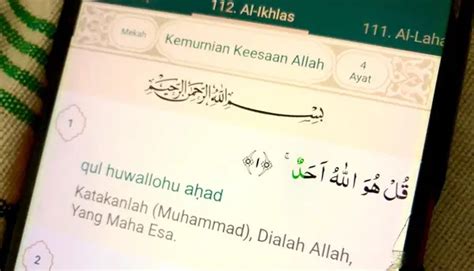 112. Al-Ikhlas
111. Al-Laha
Mekah
Kemurnian Keesaan Allah
4
Ayat
بِسْمِ اللهِ الرَّحْمٰنِ الرَّحِيْمِ
1
قُلْ هُوَ اللّٰهُ اَحَدٌ ۚ ﴿١﴾
qul huwallohu aḥad
Katakanlah (Muhammad), Dialah Allah,
Yang Maha Esa.
2